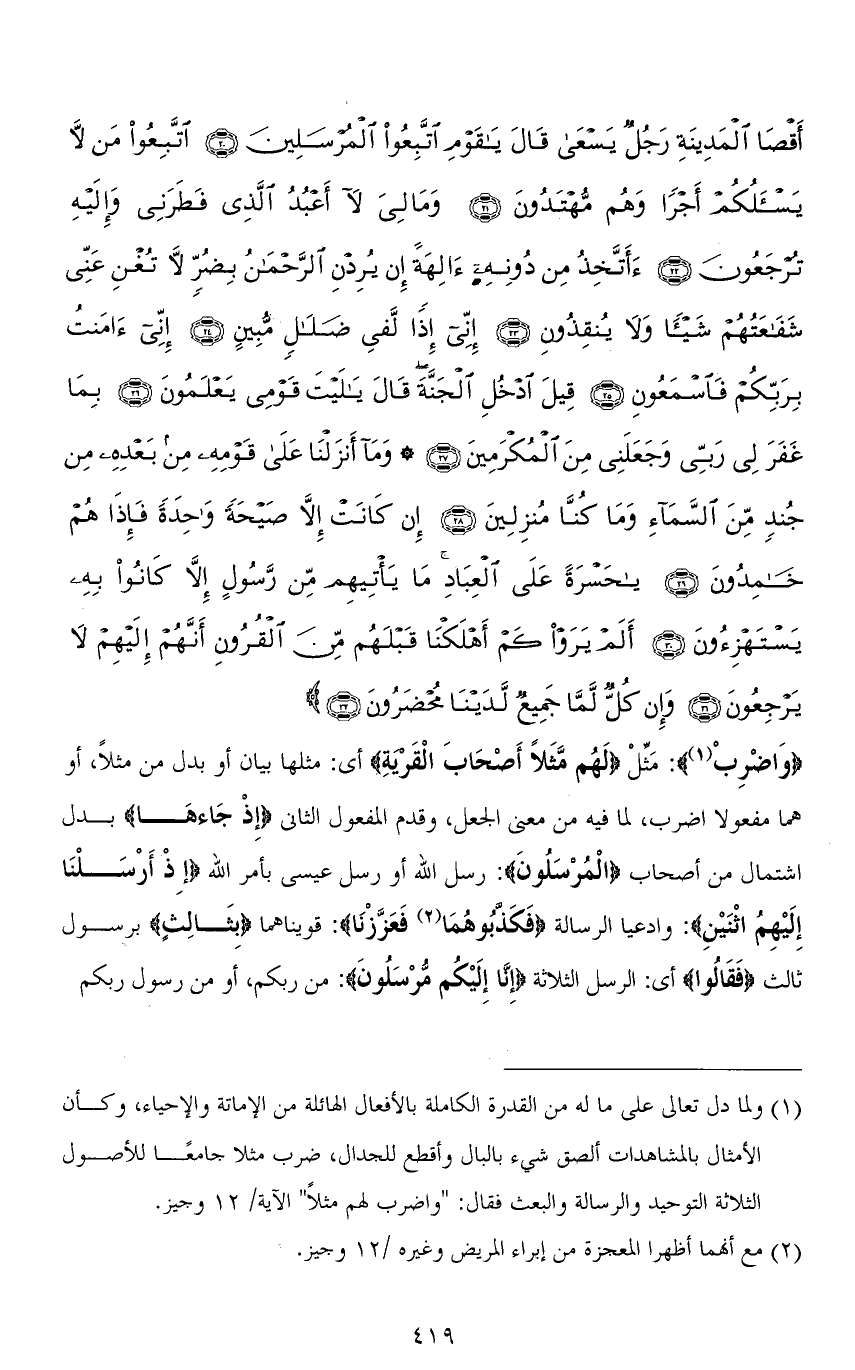 أَقْصَا ٱلْمَدِينَةِ رَجُلٌ يَسْعَىٰ قَالَ يَـٰقَوْمِ ٱتَّبِعُوا۟ ٱلْمُرْسَلِينَ ﴿٢٠﴾ ٱتَّبِعُوا۟ مَن لَّا
يَسْـَٔلُكُمْ أَجْرًا وَهُم مُّهْتَدُونَ ﴿٢١﴾ وَمَالِىَ لَآ أَعْبُدُ ٱلَّذِى فَطَرَنِى وَإِلَيْهِ
تُرْجَعُونَ ﴿٢٢﴾ ءَأَتَّخِذُ مِن دُونِهِۦٓ ءَالِهَةً إِن يُرِدْنِ ٱلرَّحْمَـٰنُ بِضُرٍّ لَّا تُغْنِ عَنِّى
شَفَـٰعَتُهُمْ شَيْـًٔا وَلَا يُنقِذُونِ ﴿٢٣﴾ إِنِّىٓ إِذًا لَّفِى ضَلَـٰلٍ مُّبِينٍ ﴿٢٤﴾ إِنِّىٓ ءَامَنتُ
بِرَبِّكُمْ فَٱسْمَعُونِ ﴿٢٥﴾ قِيلَ ٱدْخُلِ ٱلْجَنَّةَ ۖ قَالَ يَـٰلَيْتَ قَوْمِى يَعْلَمُونَ ﴿٢٦﴾ بِمَا
غَفَرَ لِى رَبِّى وَجَعَلَنِى مِنَ ٱلْمُكْرَمِينَ ﴿٢٧﴾ * وَمَآ أَنزَلْنَا عَلَىٰ قَوْمِهِۦ مِنۢ بَعْدِهِۦ مِن
جُندٍ مِّنَ ٱلسَّمَآءِ وَمَا كُنَّا مُنزِلِينَ ﴿٢٨﴾ إِن كَانَتْ إِلَّا صَيْحَةً وَٰحِدَةً فَإِذَا هُمْ
خَـٰمِدُونَ ﴿٢٩﴾ يَـٰحَسْرَةً عَلَى ٱلْعِبَادِ ۚ مَا يَأْتِيهِم مِّن رَّسُولٍ إِلَّا كَانُوا۟ بِهِۦ
يَسْتَهْزِءُونَ ﴿٣٠﴾ أَلَمْ يَرَوْا۟ كَمْ أَهْلَكْنَا قَبْلَهُم مِّنَ ٱلْقُرُونِ أَنَّهُمْ إِلَيْهِمْ لَا
يَرْجِعُونَ ﴿٣١﴾ وَإِن كُلٌّ لَّمَّا جَمِيعٌ لَّدَيْنَا مُحْضَرُونَ ﴿٣٢﴾ ﴾
﴿وَاضْرِبْ(١)﴾: مَثِّلْ ﴿لَهُم مَّثَلاً أَصْحَابَ الْقَرْيَةِ﴾ أى: مثلها بيان أو بدل من مثلاً، أو
هما مفعولا اضرب، لما فيه من معنى الجعل، وقدم المفعول الثانى ﴿إِذْ جَاءهَـــا﴾ بــدل
اشتمال من أصحاب ﴿الْمُرْسَلُونَ﴾: رسل الله أو رسل عيسى بأمر الله ﴿إِذْ أَرْسَــلْنَا
إِلَيْهِمُ اثْنَيْنِ﴾: وادعيا الرسالة ﴿فَكَذَّبُوهُمَا(٢) فَعَزَّزْنَا﴾: قويناهما ﴿بِثَــالِثٍ﴾ برسـول
ثالث ﴿فَقَالُوا﴾ أى: الرسل الثلاثة ﴿إِنَّا إِلَيْكُم مُّرْسَلُونَ﴾: من ربكم، أو من رسول ربكم
(١) ولما دل تعالى على ما له من القدرة الكاملة بالأفعال الهائلة من الإماتة والإحياء، وكــأن
الأمثال بالمشاهدات ألصق شيء بالبال وأقطع للجدال، ضرب مثلا جامعًــا للأصـول
الثلاثة التوحيد والرسالة والبعث فقال: "واضرب لهم مثلاً" الآية/ ١٢ وجيز.
(٢) مع أنهما أظهرا المعجزة من إبراء المريض وغيره /١٢ وجيز.
٤١٩